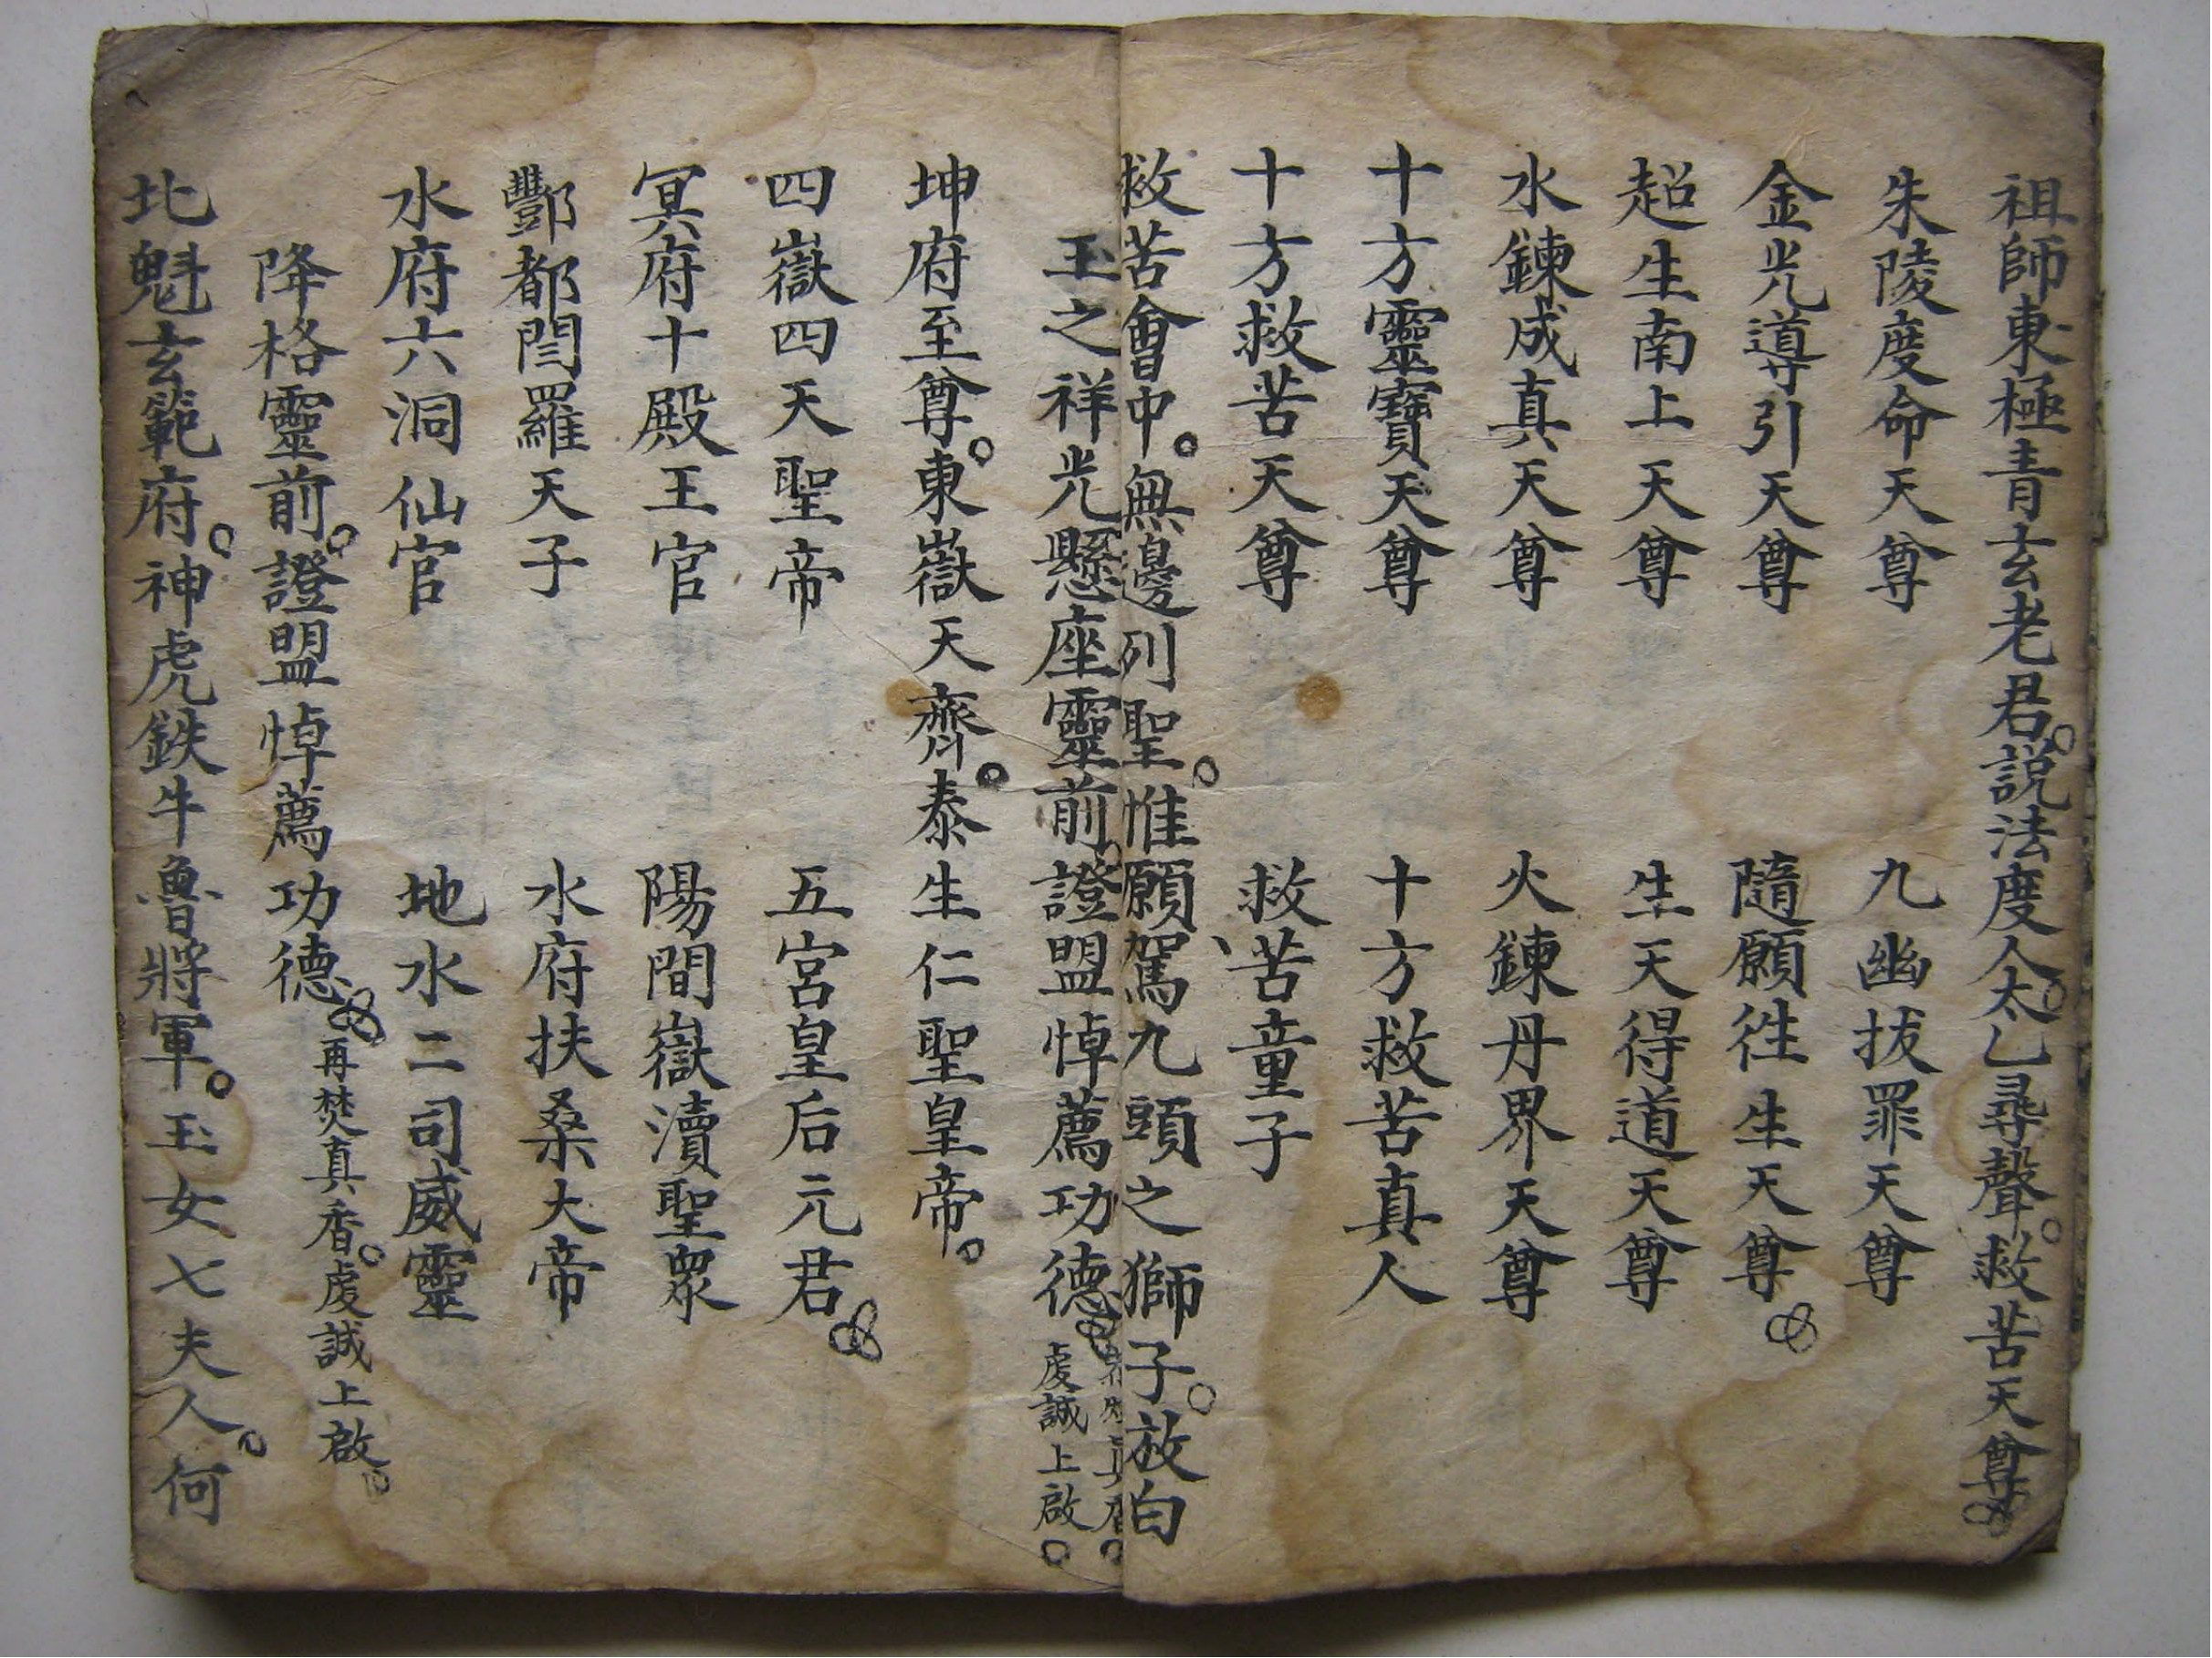 祖師東極青玄老君。説法度人。太乙尋聲。救苦天尊
朱陵度命天尊　九幽拔罪天尊
金光導引天尊　隨願徃生天尊
超生南上天尊　生天得道天尊
水鍊成真天尊　火鍊丹界天尊
十方靈寶天尊　十方救苦真人
十方救苦天尊　救苦童子
救苦會中。無邊列聖。惟願駕九頭之獅子。放白
玉之祥光懸座靈前。證盟悼薦功德
真香。
虔誠上啟。
坤府至尊。東嶽天齊。泰生仁聖皇帝。
四嶽四天聖帝　五宮皇后元君
冥府十殿王官　陽間嶽瀆聖眾
酆都閆羅天子　水府扶桑大帝
水府六洞仙官　地水二司威靈
降格靈前。證盟悼薦功德
再焚真香。虔誠上啟。
北魁玄範府。神虎鉄牛魯將軍。玉女七夫人。何